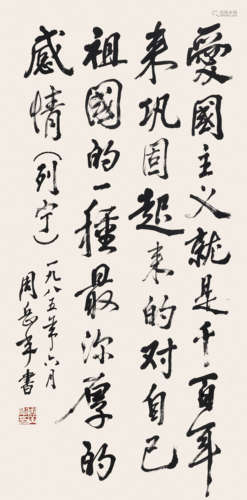 愛國主义就是千百年
来巩固起来的对自己
祖國的一種最深厚的
感情（列宁）
一九八五年六月
周書